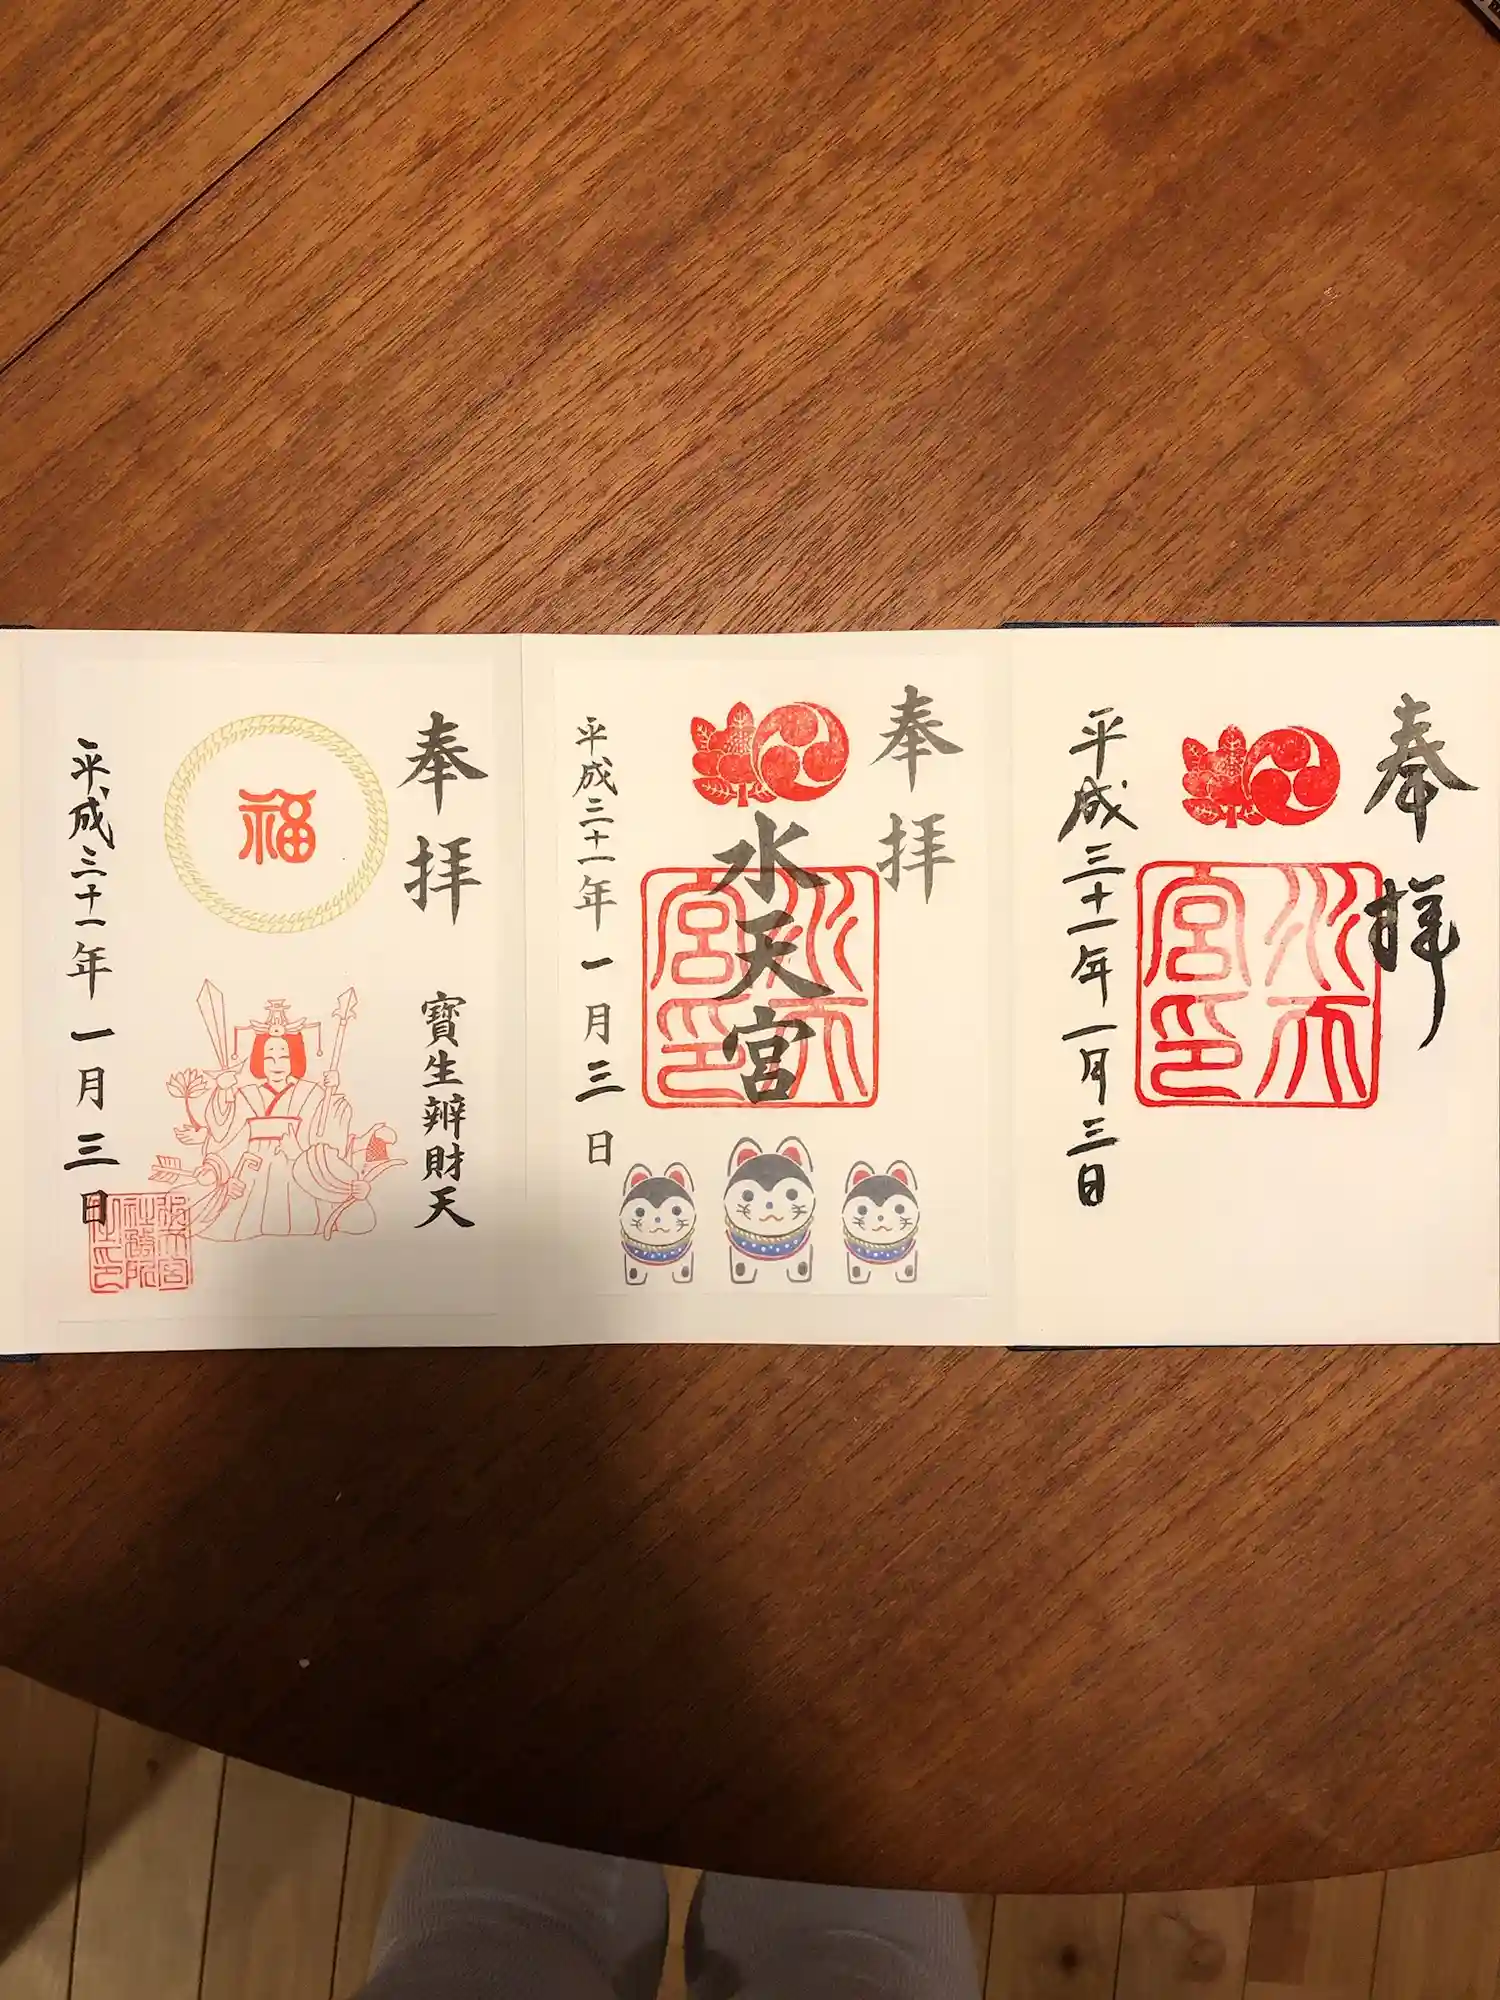 奉拝
平成三十一年一月三日
水天宮印
奉拝
水天宮
平成三十一年一月三日
水天宮印
奉拝
寶生辨財天
福
平成三十一年一月三日
水天宮社務所之印